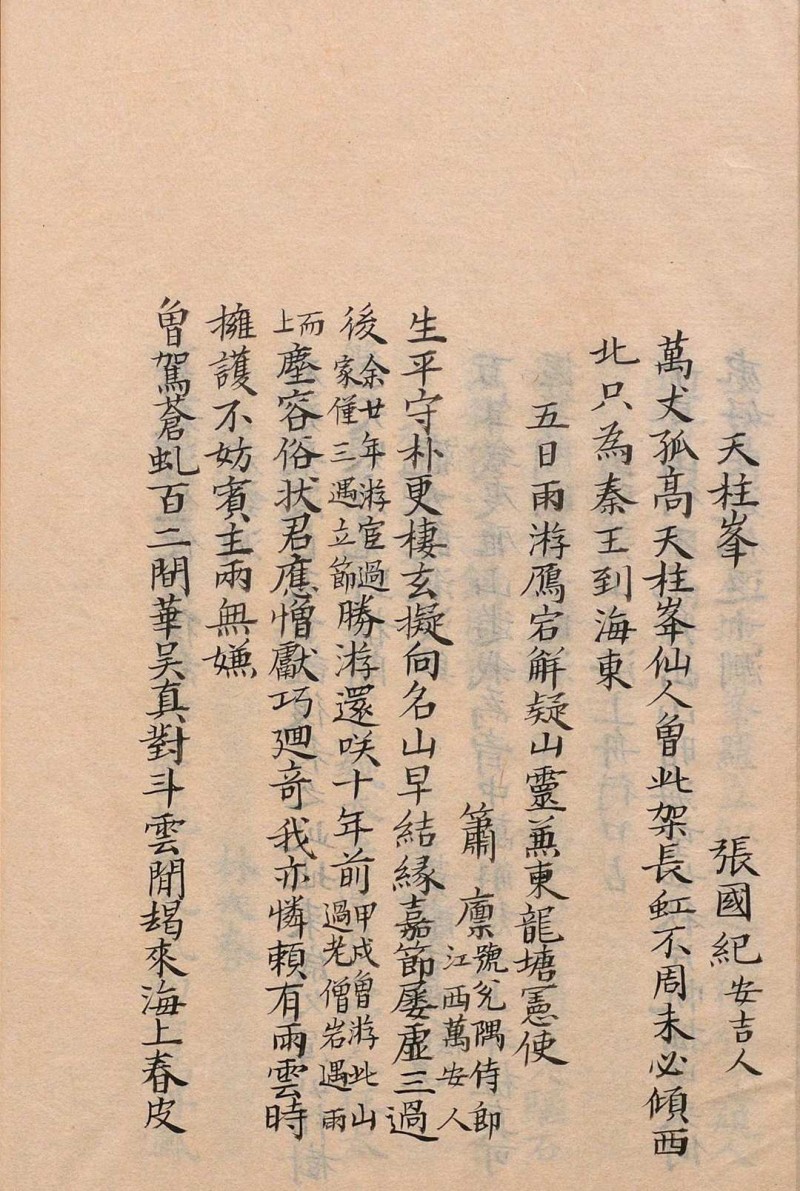 天柱峯
張國紀安吉人
萬丈孤高天柱峯仙人曽此架長虹不周未必傾西
北只為秦王到海東
五日雨游鴈宕解疑山靈兼東龍塘憲使
簫廩號兊隅侍郎江西萬安人
生平守朴更棲玄擬向名山早結緣嘉節屡虛三過
後余廿年游宦過家僅三遇立節勝游還咲十年前甲戌曽游此山過老僧岩遇雨
而上塵容俗状君應憎獻巧廻竒我亦憐頼有雨雲時
擁護不妨賓主兩無嫌
曽駕蒼虬百二間華吴真對斗雲閒朅來海上春皮